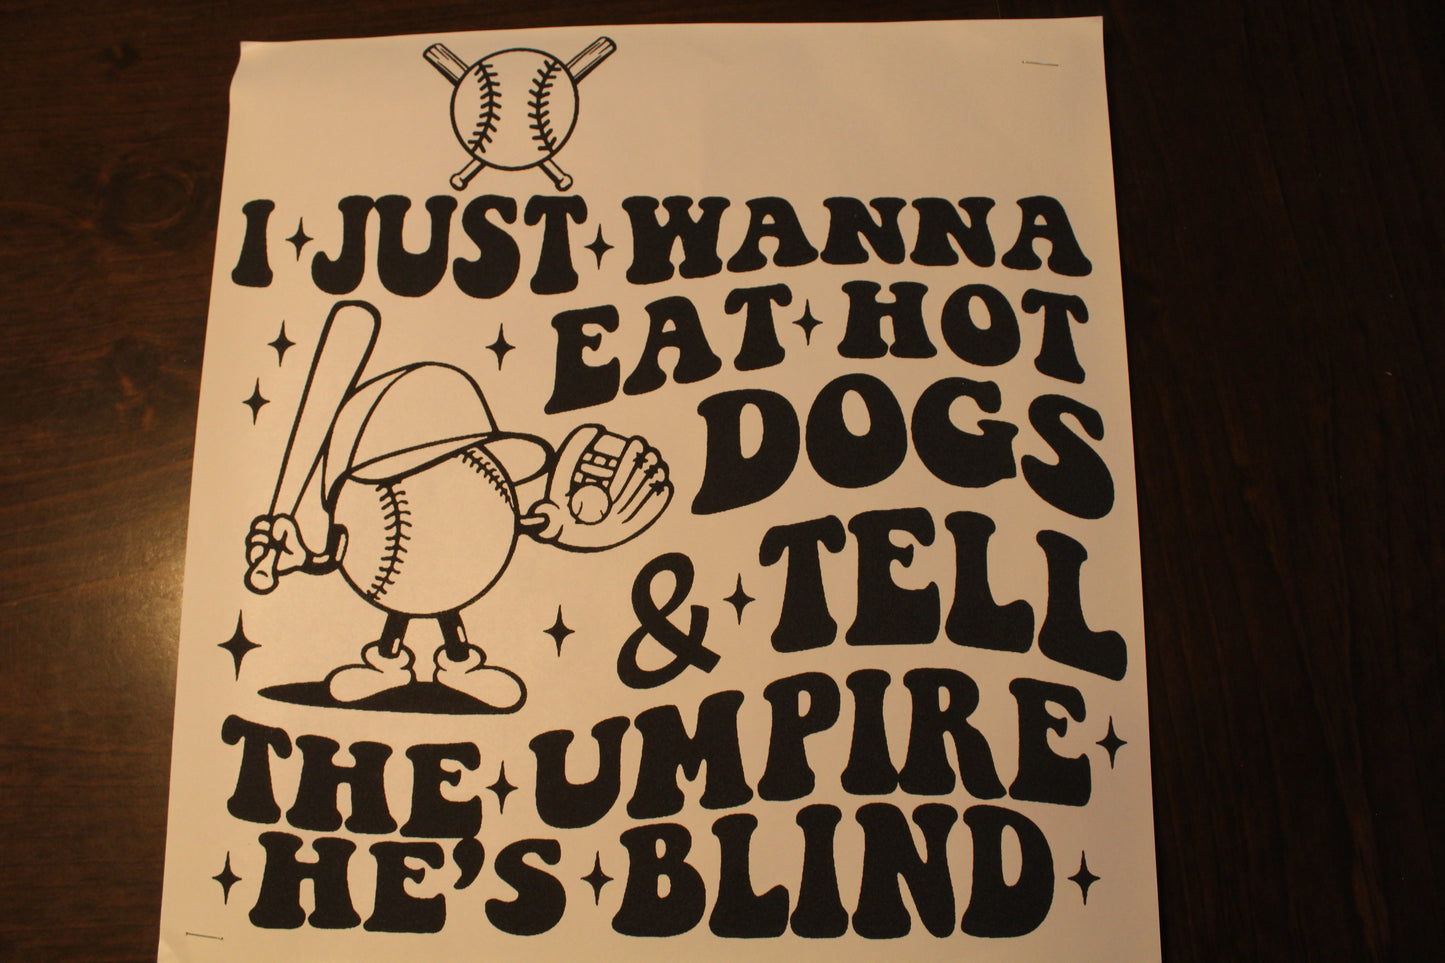 I JUST WANNA
EAT HOT
DOGS
& TELL
THE UMPIRE
HE'S BLIND